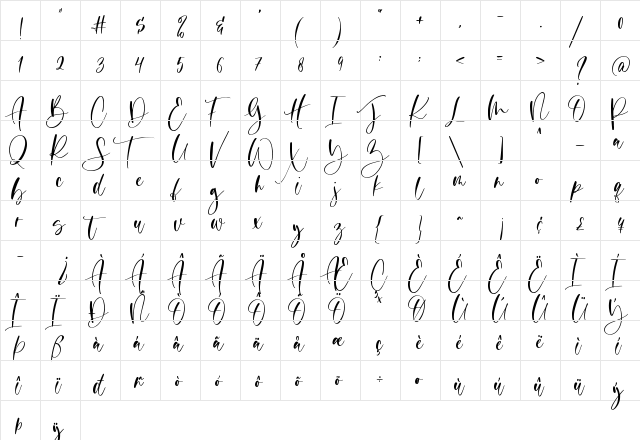 ! " # $ % & ' ( ) * + , - . / 0
1 2 3 4 5 6 7 8 9 : ; < = > ? @
A B C D E F G H I J K L M N O P
Q R S T U V W X Y Z [ \ ] ^ _ a
b c d e f g h i j k l m n o p q
r s t u v w x y z { } ~ ¡ ¢ £ ¥
¯ ¿ À Á Â Ã Ä Å Æ Ç È É Ê Ë Ì Í
Î Ï Ð Ñ Ò Ó Ô Õ Ö × Ø Ù Ú Û Ü Ý
Þ ß à á â ã ä å æ ç è é ê ë ì í
î ï đ ñ ò ó ô õ ö ÷ ø ù ú û ü ý
þ ÿ